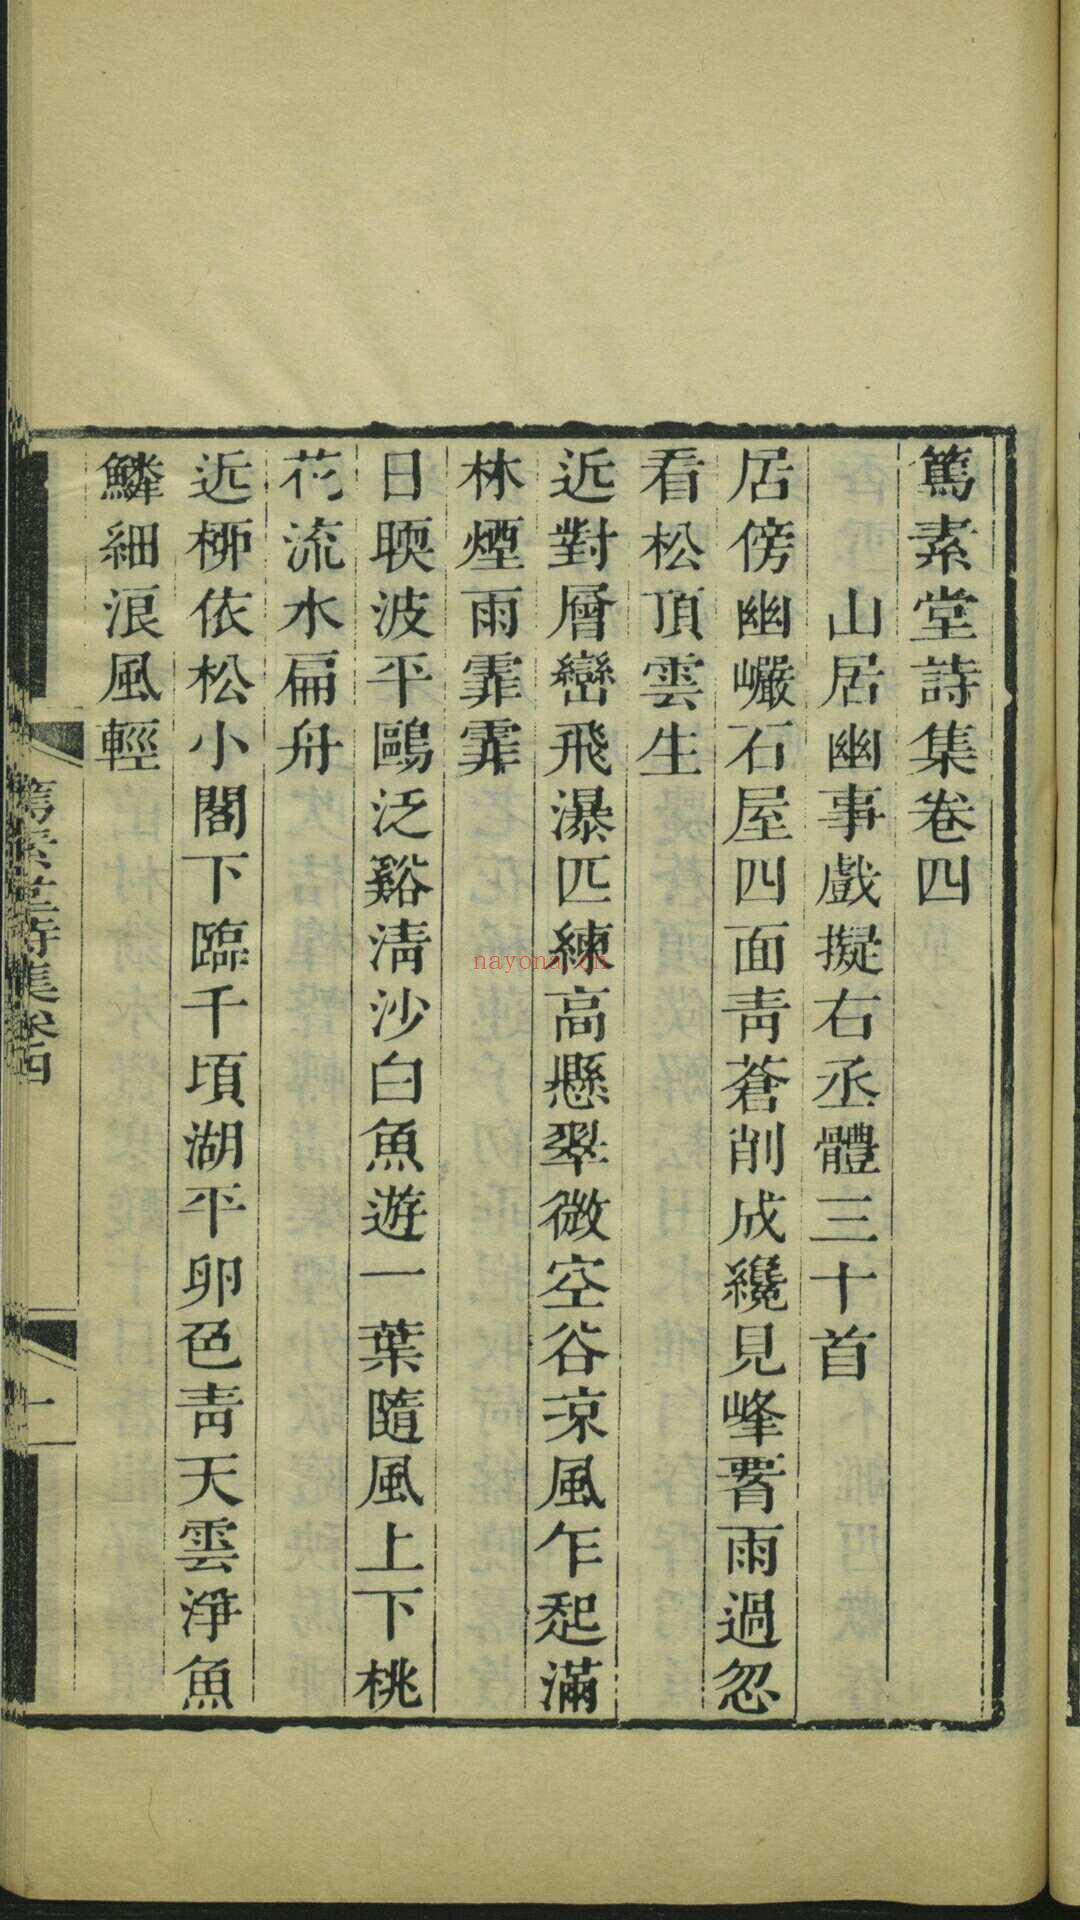 篤素堂詩集卷四
山居幽事戲擬右丞體三十首
居傍幽巖石屋四面靑蒼削成纔見峰陰雨過忽
看松頂雲生
近對層巒飛瀑匹練高懸翠微空谷凉風乍起滿
林煙雨霏霏
日暎波平鷗泛谿淸沙白魚遊一葉隨風上下桃
花流水扁舟
近柳依松小閣下臨千頃湖平卵色靑天雲淨魚
鱗細浪風輕
篤素堂詩集卷四
一
nayona.cn